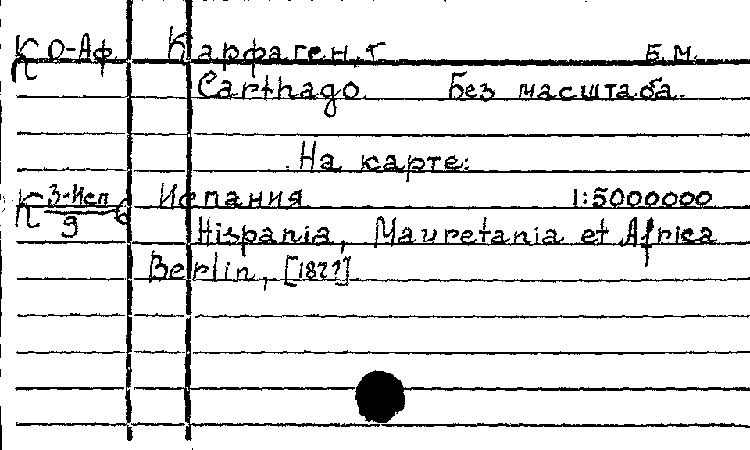 К О-Аф Карфаген, г. Б.М.
Carthago. Без масштаба.
На карте:
К 3-Исп/9 Испания 1:5000000
Hispania, Mauretania et Africa
Berlin, [18??]